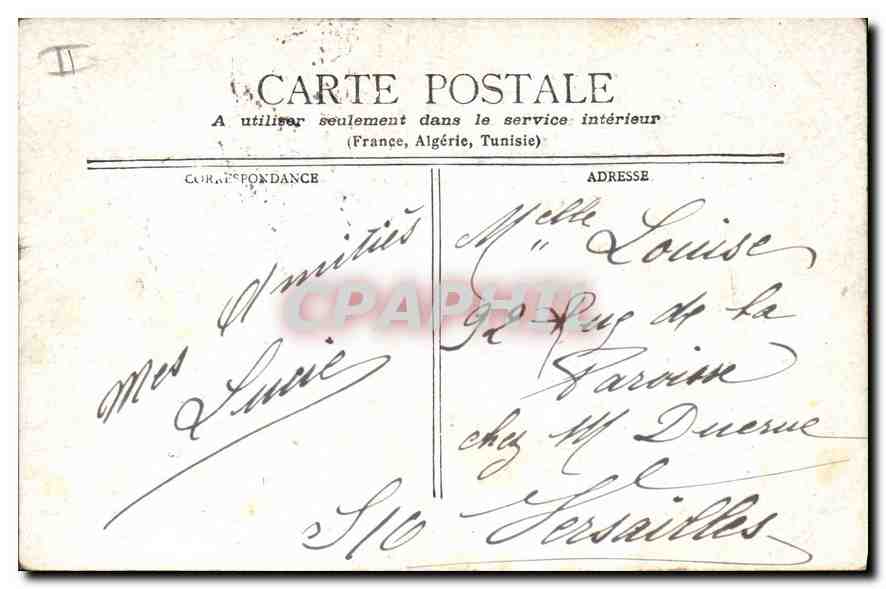 II
CARTE POSTALE
A utiliser seulement dans le service intérieur
(France, Algérie, Tunisie)
CORRESPONDANCE
ADRESSE
Mes Amitiés
Lucie
Melle Louise
92 Rue de la
Paroisse
chez M Ducrue
S/O Versailles
CPAPHIL